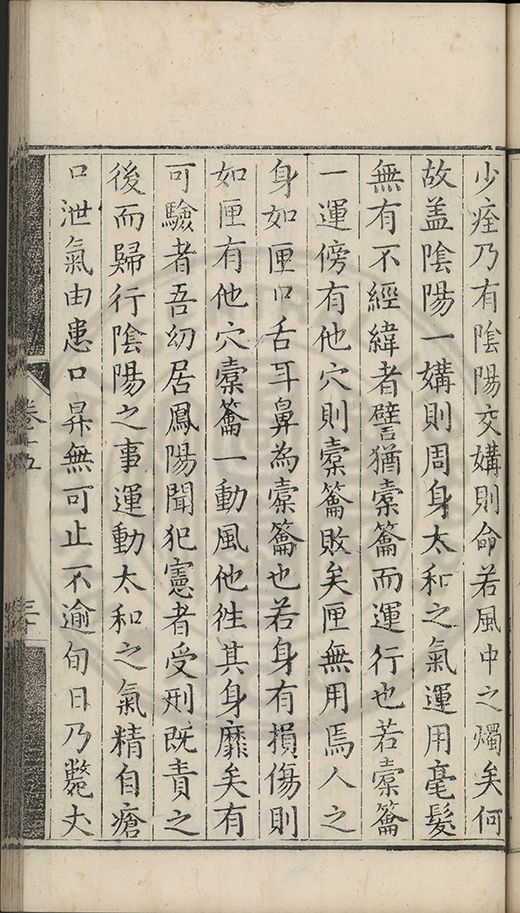 少痊乃有陰陽交媾則命若風中之燭矣何
故盖陰陽一媾則周身太和之氣運用毫髮
無有不經緯者譬猶橐籥而運行也若橐籥
一運傍有他穴則橐籥敗矣匣無用焉人之
身如匣口舌耳鼻為橐籥也若身有損傷則
如匣有他穴橐籥一動風他徃其身靡矣有
可驗者吾幼居鳳陽聞犯憲者受刑既責之
後而歸行陰陽之事運動太和之氣精自瘡
口泄氣由患口昇無可止不逾旬日乃斃丈
卷十五
三十